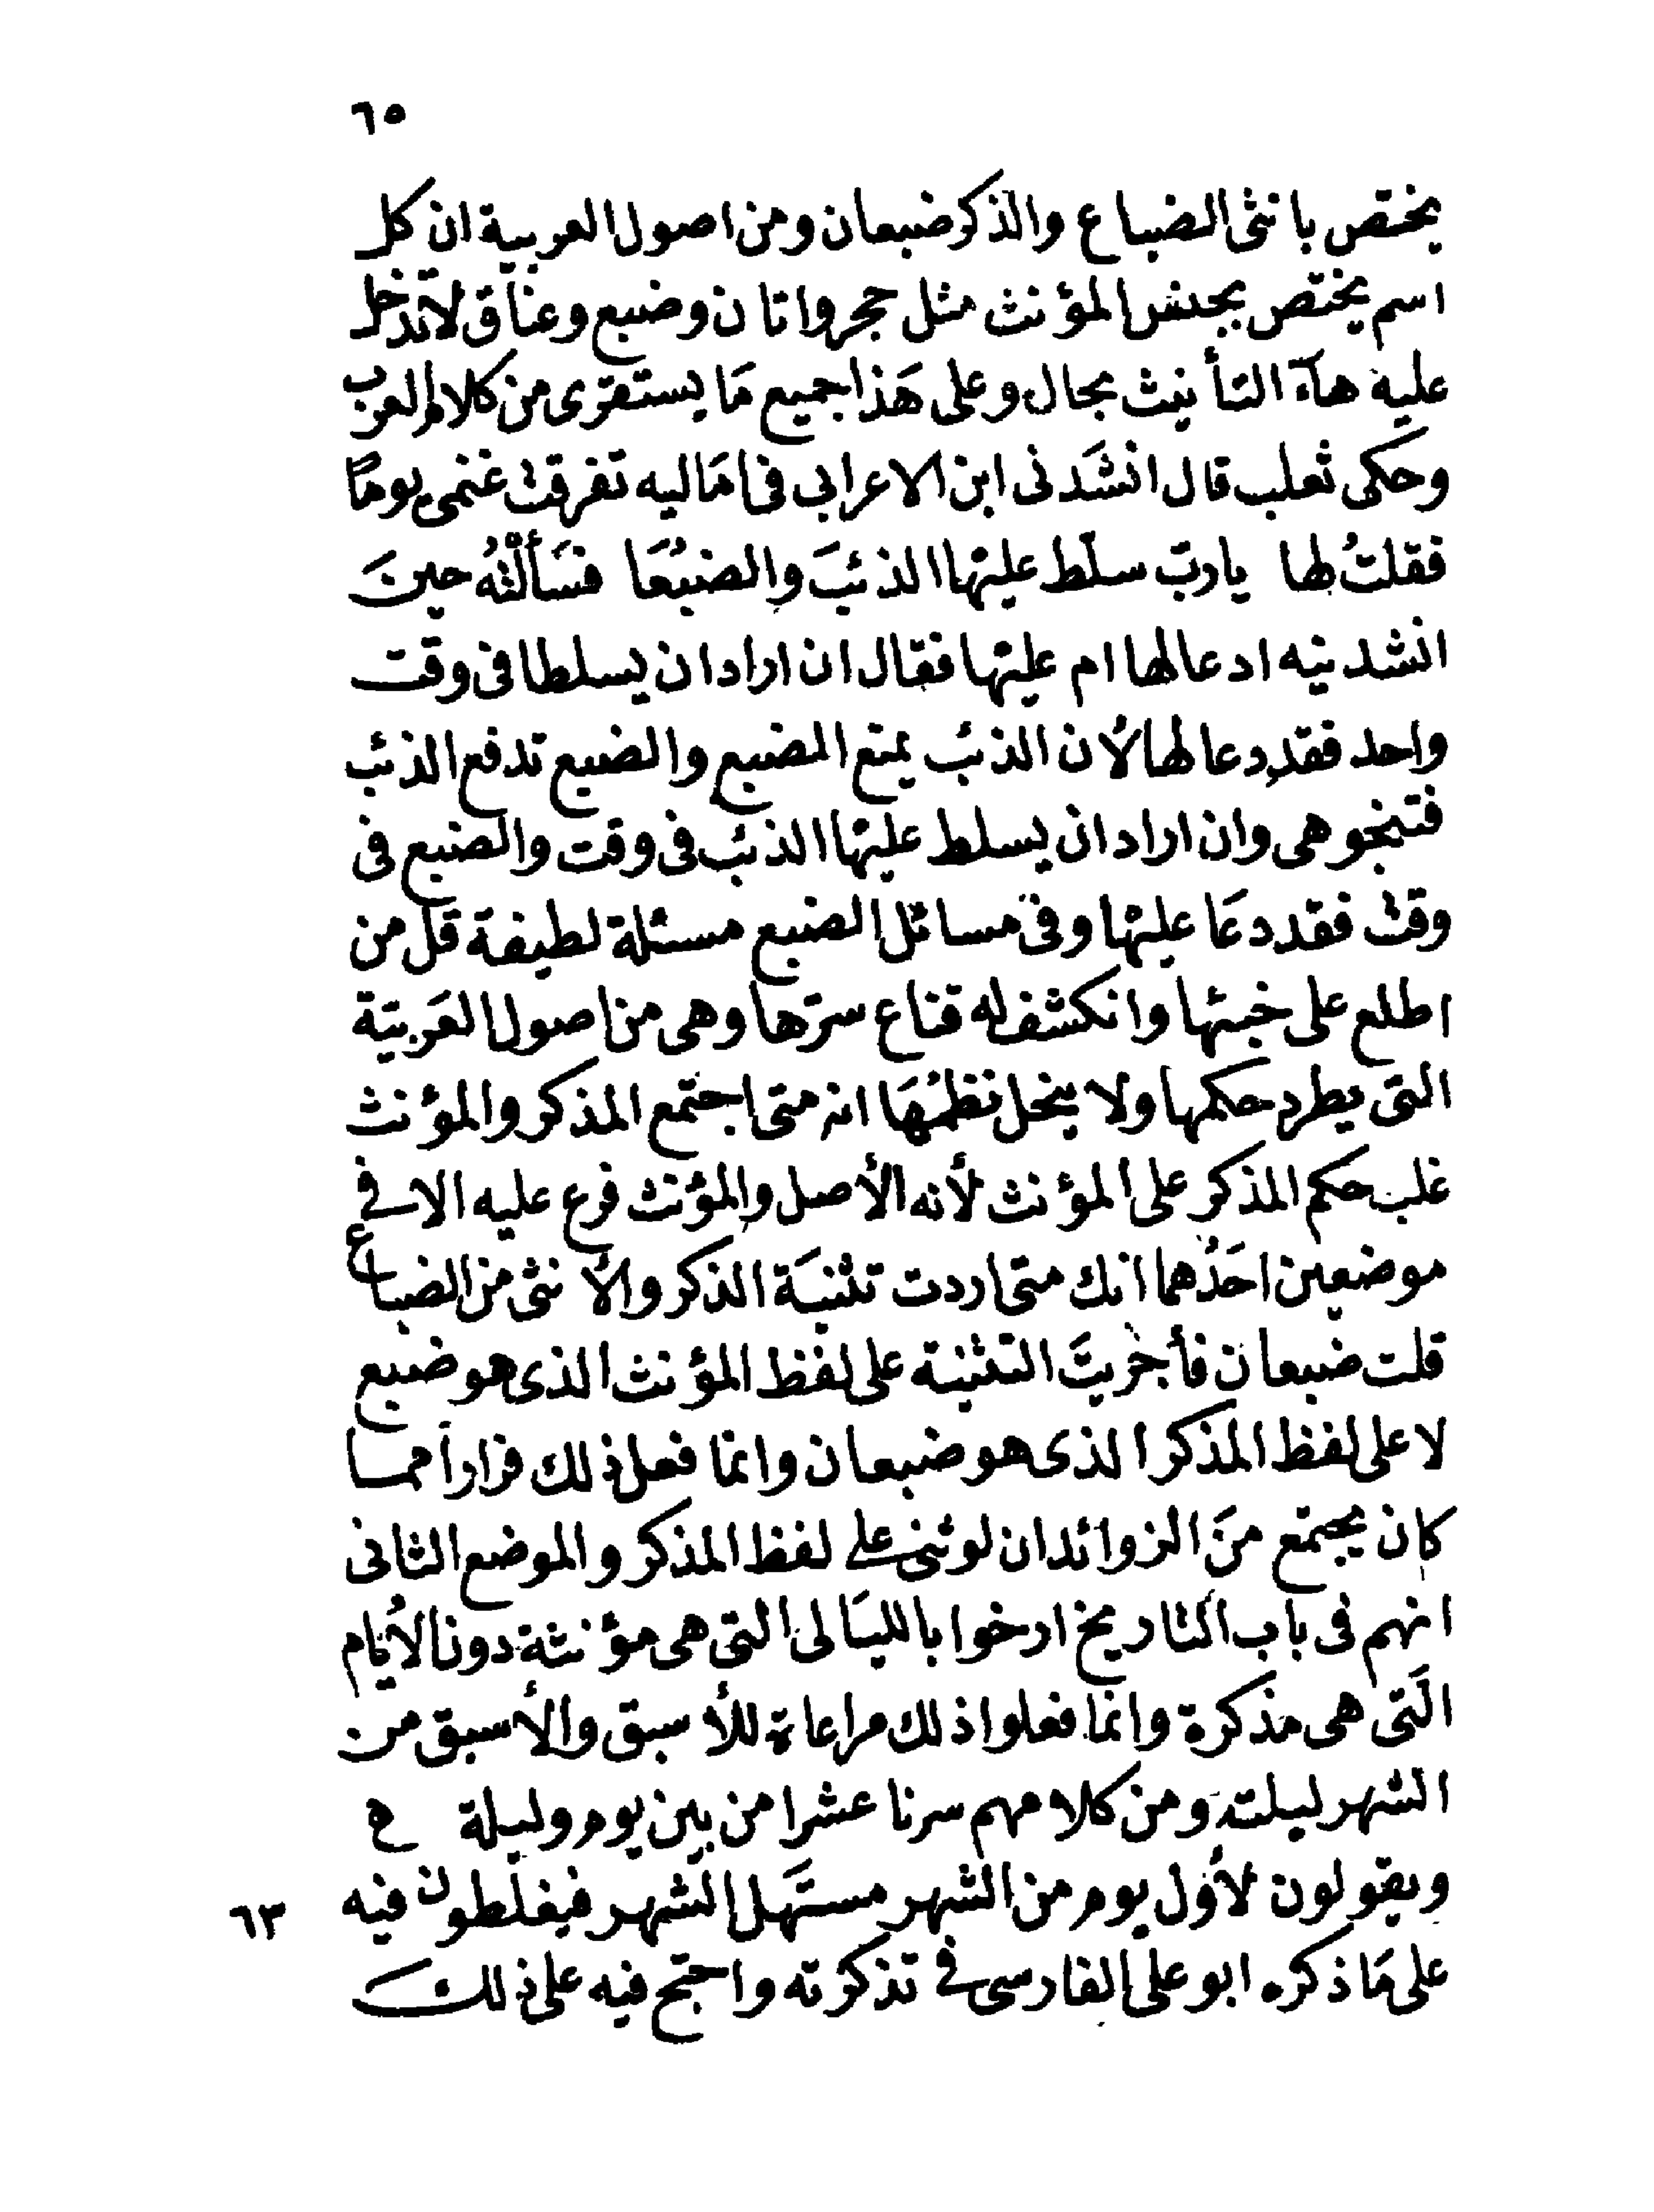 ٦٥
يختص بانثى الضباع والذكر ضبعان ومن اصول العربية ان كل
اسم يختص بجنس المؤنث مثل حجر واتان وضبع وعناق لا تدخل
عليه هآء التأنيث بحال وعلى هَذا جميع مَا يستقرى من كلام العرب
وحكى ثعلب قال انشَدنى ابن الاعرابى فى امَاليه تفرقت غنمى يومًا
فقلتُ لها يا ربّ سلّط عليها الذئبَ والضبُعَا فسَألتُه حينَ
انشدنيه ادعا لها ام عليها فقال ان اراد ان يسلطا فى وقت
واحد فقد دعا لها لأن الذئب يمنع الضبع والضبع تدفع الذئب
فتنجو هى وان اراد ان يسلط عليها الذئب فى وقت والضبع فى
وقت فقد دعَا عليها وفى مسائل الضبع مسئلة لطيفة قل من
اطلع على خبئها وانكشف له قناع سرّها وهى من اصول العَربيّة
التى يطرد حكمها ولا ينحل نظمُهَا انه متى اجتمع المذكر والمؤنث
غلب حكم المذكر على المؤنث لأنه الأصل والمؤنث فرع عليه الا فى
موضعين احَدُهما انك متى اردت تثنيَة الذكر والأنثى من الضباع
قلت ضبعان فأجْريتَ التثنية على لفظ المؤنث الذى هو ضبع
لا على لفظ المذكر الذى هو ضبعان وانما فعل ذلك فراراً مما
كان يجتمع منَ الزوائد ان لو ثنى على لفظ المذكر والموضع الثانى
انهم فى باب التاريخ ارخوا بالليَالى التى هى مؤنثة دون الأيّام
الَتى هى مذكرة وانما فعلوا ذلك مراعاة للأسبق والأسبق من
الشهر ليلته ومن كلامهم سرنا عشرا من بين يوم وليلة ح
ويقولون لأول يوم من الشهر مستَهل الشهر فيغلطون فيه
٦٣
على مَا ذكره ابو على الفارسى فى تذكرته واحتج فيه على ذلك